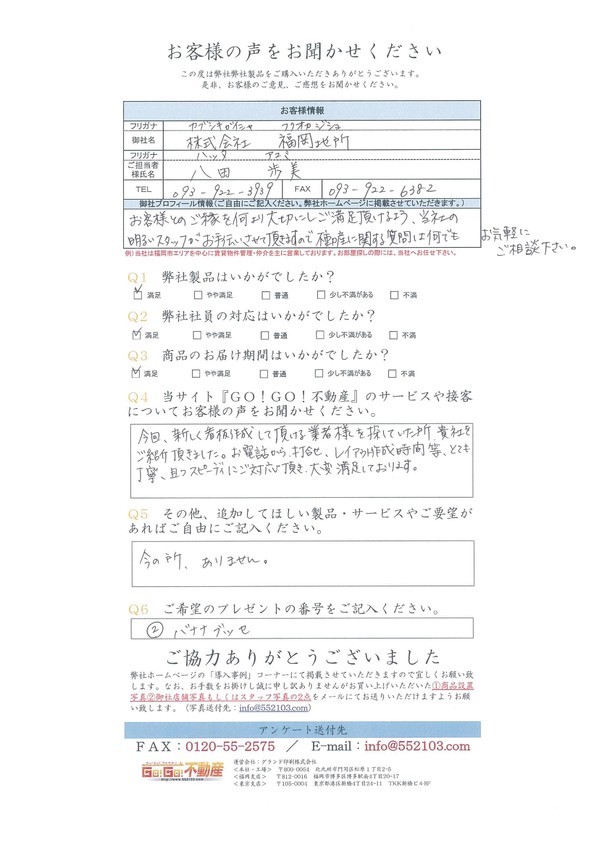 お客様の声をお聞かせください
この度は弊社弊社製品をご購入いただきありがとうございます。
是非、お客様のご意見、ご感想をお聞かせください。
お客様情報
フリガナ カブシキガイシャ フクオカジショ
御社名 株式会社 福岡地所
フリガナ ハッタ アユミ
ご担当者様氏名 八田 歩美
TEL 093-922-3939 FAX 093-922-6382
御社プロフィール情報(ご自由にご記入ください。弊社ホームページに掲載させていただきます。)
お客様とのご縁を何より大切にしご満足頂けるよう、当社の
明るいスタッフがお手伝いさせて頂きますので不動産に関する質問は何でも
お気軽に
ご相談下さい。
例)当社は福岡市エリアを中心に賃貸物件管理・仲介を主に営業しております。お部屋探しの際には、当社へお任せ下さい。
Q1 弊社製品はいかがでしたか?
☑満足 □やや満足 □普通 □少し不満がある □不満
Q2 弊社社員の対応はいかがでしたか?
☑満足 □やや満足 □普通 □少し不満がある □不満
Q3 商品のお届け期間はいかがでしたか?
☑満足 □やや満足 □普通 □少し不満がある □不満
Q4 当サイト『GO!GO!不動産』のサービスや接客
についてお客様の声をお聞かせください。
今回、新しく看板作成して頂ける業者様を探していた所、貴社を
ご紹介頂きました。お電話から、打合せ、レイアウト作成時間等、とても
丁寧、且つスピーディにご対応頂き、大変満足しております。
Q5 その他、追加してほしい製品・サービスやご要望が
あればご自由にご記入ください。
今の所、ありません。
Q6 ご希望のプレゼントの番号をご記入ください。
② バナナブッセ
ご協力ありがとうございました
弊社ホームページの「導入事例」コーナーにて掲載させていただきますので宜しくお願い致
します。なお、お手数をお掛けし誠に申し訳ありませんがお買い上げいただいた①商品設置
写真②御社店舗写真もしくはスタッフ写真の2点をメールにてお送りいただけますようお願
い致します。(写真送付先:info@552103.com)
アンケート送付先
FAX:0120-55-2575 / E-mail:info@552103.com
GO!GO!不動産
運営会社:グランド印刷株式会社
<本社・工場> 〒800-0054 北九州市門司区松原1丁目2-5
<福岡支店> 〒812-0016 福岡市博多区博多駅南4丁目20-17
<東京支店> 〒105-0004 東京都港区新橋4丁目24-11 TKK新橋ビル8F